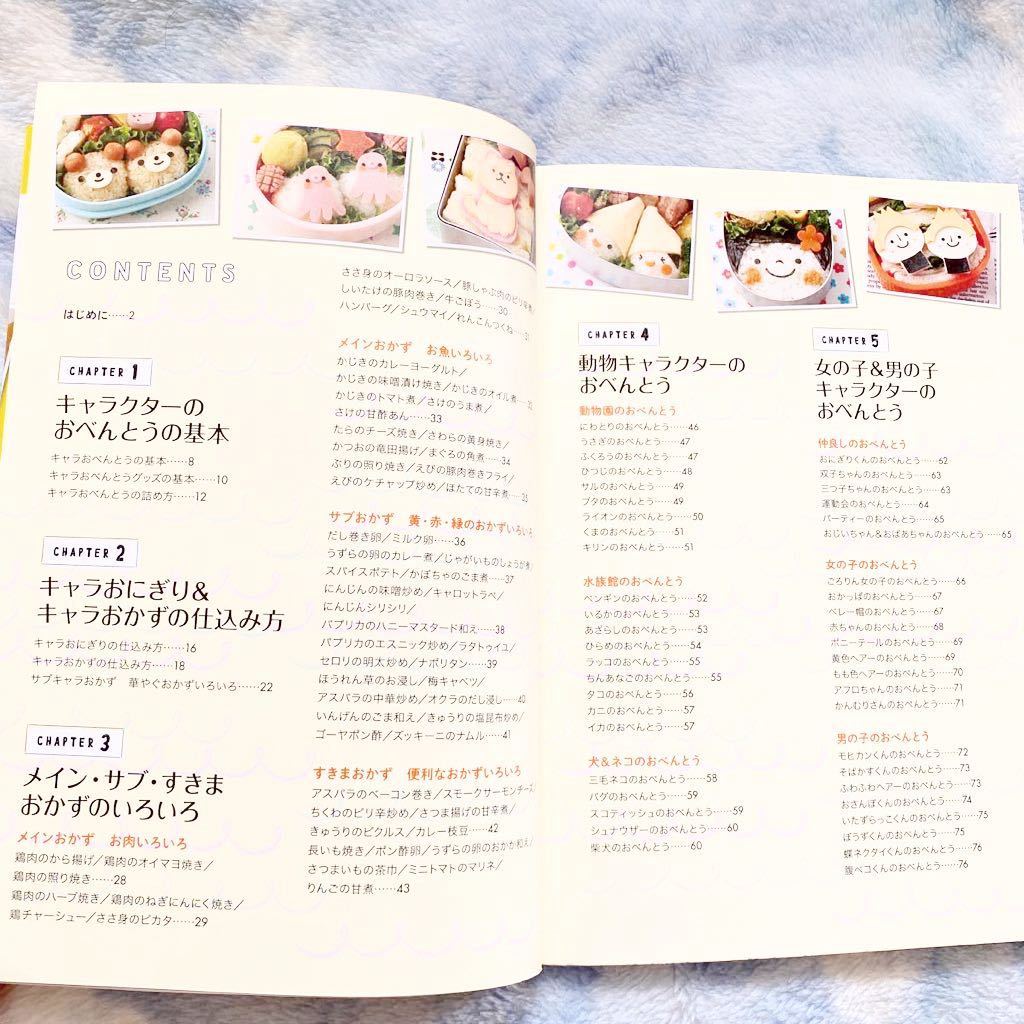 CONTENTS
はじめに……2
CHAPTER 1
キャラクターの
おべんとうの基本
キャラおべんとうの基本……8
キャラおべんとうグッズの基本……10
キャラおべんとうの詰め方……12
CHAPTER 2
キャラおにぎり&
キャラおかずの仕込み方
キャラおにぎりの仕込み方……16
キャラおかずの仕込み方……18
サブキャラおかず 華やぐおかずいろいろ……22
CHAPTER 3
メイン・サブ・すきま
おかずのいろいろ
メインおかず お肉いろいろ
鶏肉のから揚げ/鶏肉のオイマヨ焼き/
鶏肉の照り焼き……28
鶏肉のハーブ焼き/鶏肉のねぎにんにく焼き/
鶏チャーシュー/ささ身のピカタ……29
ささ身のオーロラソース/豚しゃぶ肉のピリ辛
しいたけの豚肉巻き/牛ごぼう……30
ハンバーグ/シュウマイ/れんこんつくね……31
メインおかず お魚いろいろ
かじきのカレーヨーグルト/
かじきの味噌漬け焼き/かじきのオイル煮……
かじきのトマト煮/さけのうま煮/
さけの甘酢あん……33
たらのチーズ焼き/さわらの黄身焼き/
かつおの竜田揚げ/まぐろの角煮……34
ぶりの照り焼き/えびの豚肉巻きフライ/
えびのケチャップ炒め/ほたての甘辛煮……35
サブおかず 黄・赤・緑のおかずいろいろ
だし巻き卵/ミルク卵……36
うずらの卵のカレー煮/じゃがいものしょうが煮/
スパイスポテト/かぼちゃのごま煮……37
にんじんの味噌炒め/キャロットラペ/
にんじんシリシリ/
パプリカのハニーマスタード和え……38
パプリカのエスニック炒め/ラタトゥイユ/
セロリの明太炒め/ナポリタン……39
ほうれん草のお浸し/梅キャベツ/
アスパラの中華炒め/オクラのだし浸し……40
いんげんのごま和え/きゅうりの塩昆布炒め/
ゴーヤポン酢/ズッキーニのナムル……41
すきまおかず 便利なおかずいろいろ
アスパラのベーコン巻き/スモークサーモンチーズ/
ちくわのピリ辛炒め/さつま揚げの甘辛煮/
きゅうりのピクルス/カレー枝豆……42
長いも焼き/ポン酢卵/うずらの卵のおかか和え/
さつまいもの茶巾/ミニトマトのマリネ/
りんごの甘煮……43
CHAPTER 4
動物キャラクターの
おべんとう
動物園のおべんとう
にわとりのおべんとう……46
うさぎのおべんとう……47
ふくろうのおべんとう……47
ひつじのおべんとう……48
サルのおべんとう……49
ブタのおべんとう……49
ライオンのおべんとう……50
くまのおべんとう……51
キリンのおべんとう……51
水族館のおべんとう
ペンギンのおべんとう……52
いるかのおべんとう……53
あざらしのおべんとう……53
ひらめのおべんとう……54
ラッコのおべんとう……55
ちんあなごのおべんとう……55
タコのおべんとう……56
カニのおべんとう……57
イカのおべんとう……57
犬&ネコのおべんとう
三毛ネコのおべんとう……58
パグのおべんとう……59
スコティッシュのおべんとう……59
シュナウザーのおべんとう……60
柴犬のおべんとう……60
CHAPTER 5
女の子&男の子
キャラクターの
おべんとう
仲良しのおべんとう
おにぎりくんのおべんとう……62
双子ちゃんのおべんとう……63
三つ子ちゃんのおべんとう……63
運動会のおべんとう……64
パーティーのおべんとう……65
おじいちゃん&おばあちゃんのおべんとう……65
女の子のおべんとう
ごろりん女の子のおべんとう……66
おかっぱのおべんとう……67
ベレー帽のおべんとう……67
赤ちゃんのおべんとう……68
ポニーテールのおべんとう……69
黄色ヘアーのおべんとう……69
もも色ヘアーのおべんとう……70
アフロちゃんのおべんとう……71
かんむりさんのおべんとう……71
男の子のおべんとう
モヒカンくんのおべんとう……72
そばかすくんのおべんとう……73
ふわふわヘアーのおべんとう……73
おさんぽくんのおべんとう……74
いたずらっこくんのおべんとう……75
ぼうずくんのおべんとう……75
蝶ネクタイくんのおべんとう……76
腹ペコくんのおべんとう……76